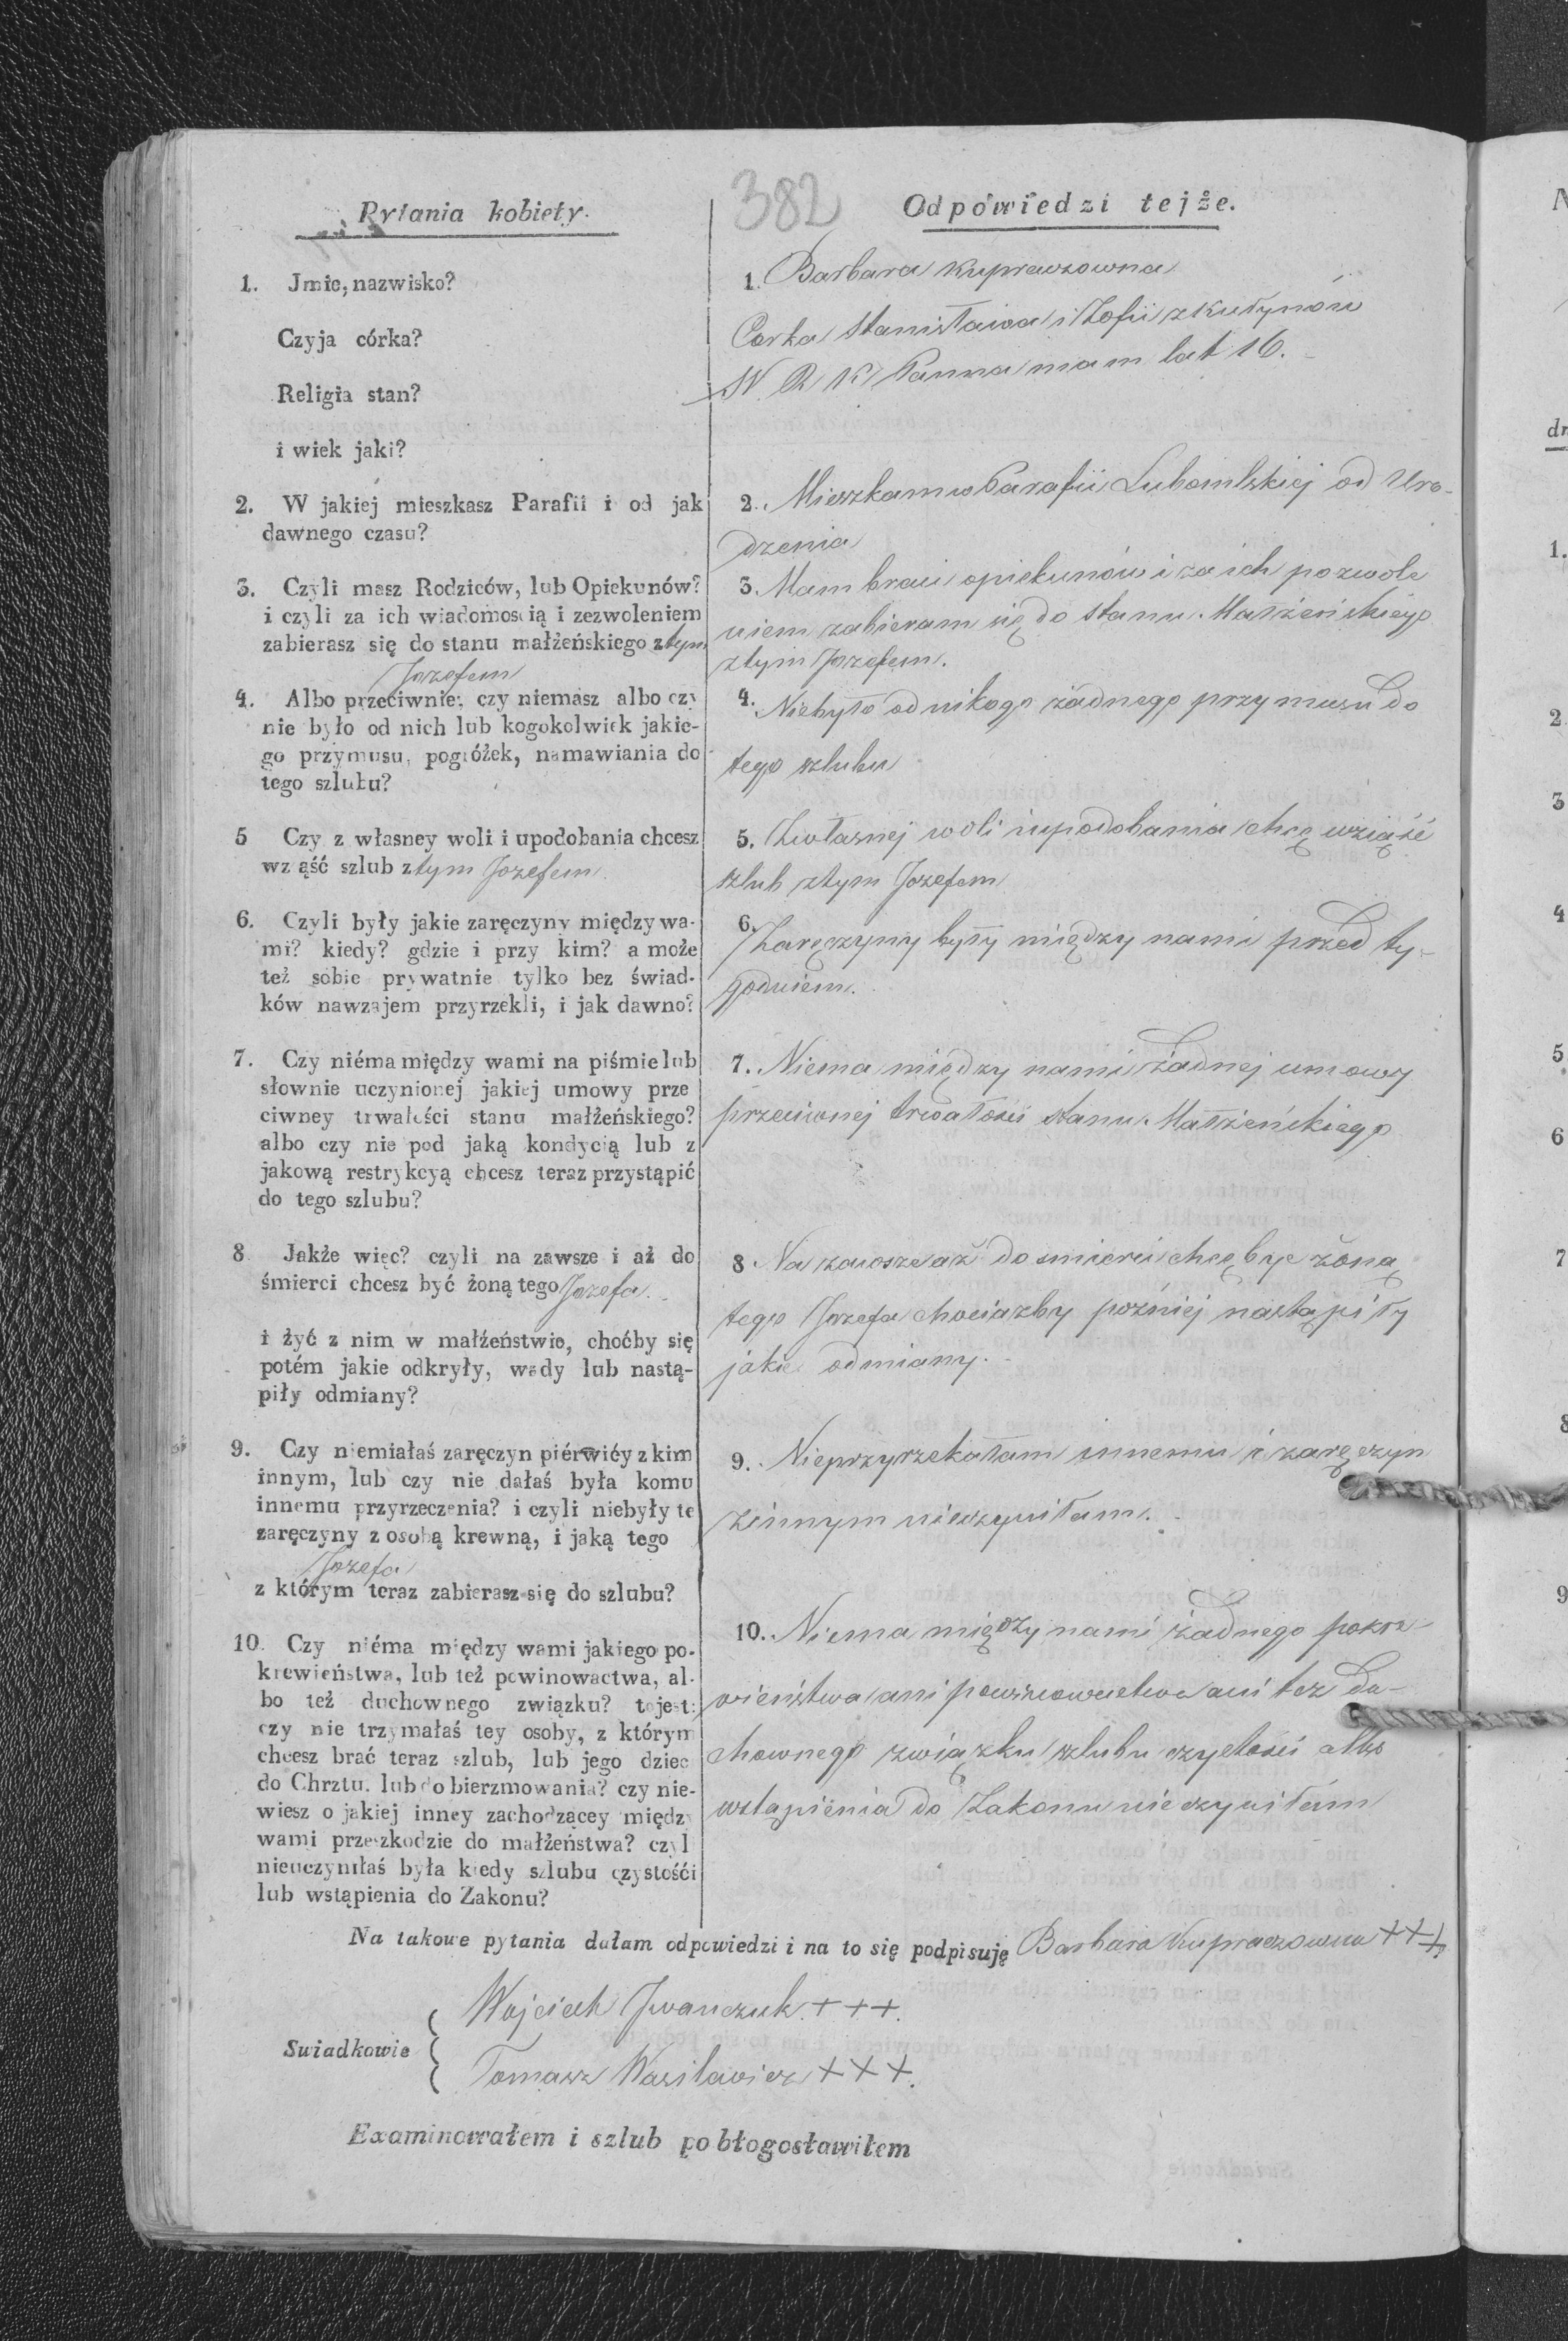 382
Pytania kobiety.
1. Jmie, nazwisko?
Czyja córka?
Religia stan?
i wiek jaki?
2. W jakiéj mieszkasz Parafii i od jak
dawnego czasu?
3. Czyli masz Rodziców, lub Opiekunów?
i czyli za ich wiadomoscią i zezwoleniem
zabierasz się do stanu małżeńskiego z tym
Jozefem
4. Albo przeciwnie, czy niemasz albo czy
nie było od nich lub kogokolwiek jakie-
go przymusu, pogróżek, namawiania do
tego szlubu?
5 Czy z własney woli i upodobania chcesz
wziąść szlub z tym Jozefem.
6. Czyli były jakie zaręczyny między wa-
mi? kiedy? gdzie i przy kim? a może
też sobie prywatnie tylko bez świad-
ków nawzajem przyrzekli, i jak dawno?
7. Czy niéma między wami na piśmie lub
słownie uczynionej jakiej umowy prze
ciwney trwałości stanu małżeńskiego?
albo czy nie pod jaką kondycią lub z
jakową restrykcyą chcesz teraz przystąpić
do tego szlubu?
8 Jakże więc? czyli na zawsze i aż do
śmierci chcesz być żoną tego Jozefa.
i żyć z nim w małżeństwie, choćby się
potém jakie odkryły, wady lub nastą-
piły odmiany?
9. Czy niemiałaś zaręczyn piérwiéy z kim
innym, lub czy nie dałaś była komu
innemu przyrzeczenia? i czyli niebyły te
zaręczyny z osobą krewną, i jaką tego
Jozefa
z którym teraz zabierasz się do szlubu?
10. Czy niéma między wami jakiego po-
krewieństwa, lub też powinowactwa, al-
bo też duchownego związku? to jest:
czy nie trzymałaś tey osoby, z którym
chcesz brać teraz szlub, lub jego dziec
do Chrztu. lub do bierzmowania? czy nie-
wiesz o jakiej inney zachodzącey między
wami przeszkodzie do małżeństwa? czyl
nieuczyniłaś była kiedy szlubu czystośći
lub wstąpienia do Zakonu?
Odpowiedzi tejże.
1. Barbara Kupraczowna
Corka Stanisława i Zofii z Kutynów
W. R K Panna mam lat 16.
2. Mieszkam w Parafii Lubomlskiej od Uro-
dzenia
3. Mam braci opiekunów i za ich pozwole
niem zabieram się do stanu Małżeńskiego
z tym Jozefem.
4. Niebyło od nikogo żadnego przymusu do
tego szlubu
5. Z własnej woli i upodobania chcę wziąźć
szlub z tym Jozefem
6. Zaręczyny były między nami przed ty-
godniem.
7. Niema między nami żadnej umowy
przeciwnej trwałości stanu Małżeńskiego
8 Na zawsze aż do smierci chcę być żoną
tego Jozefa chociażby poźniej nastąpiły
jakie odmiany.
9. Nieprzyrzekałam innemu i zaręczyn
z innym nieczyniłam.
10. Niema między nami żadnego pokre-
wieństwa ani powinowactwa ani też du-
chownego związku szlubu czystości albo
wstąpienia do Zakonu nie czyniłam
Na takowe pytania dałam odpowiedzi i na to się podpisuję Barbara Kupraczowna +++
Swiadkowie
Wojciech Jwanczuk. +++.
Tomasz Wasilewicz +++.
Examinowałem i szlub pobłogosławiłem
N
dn
1.
2
3
4
5
6
7
8
9